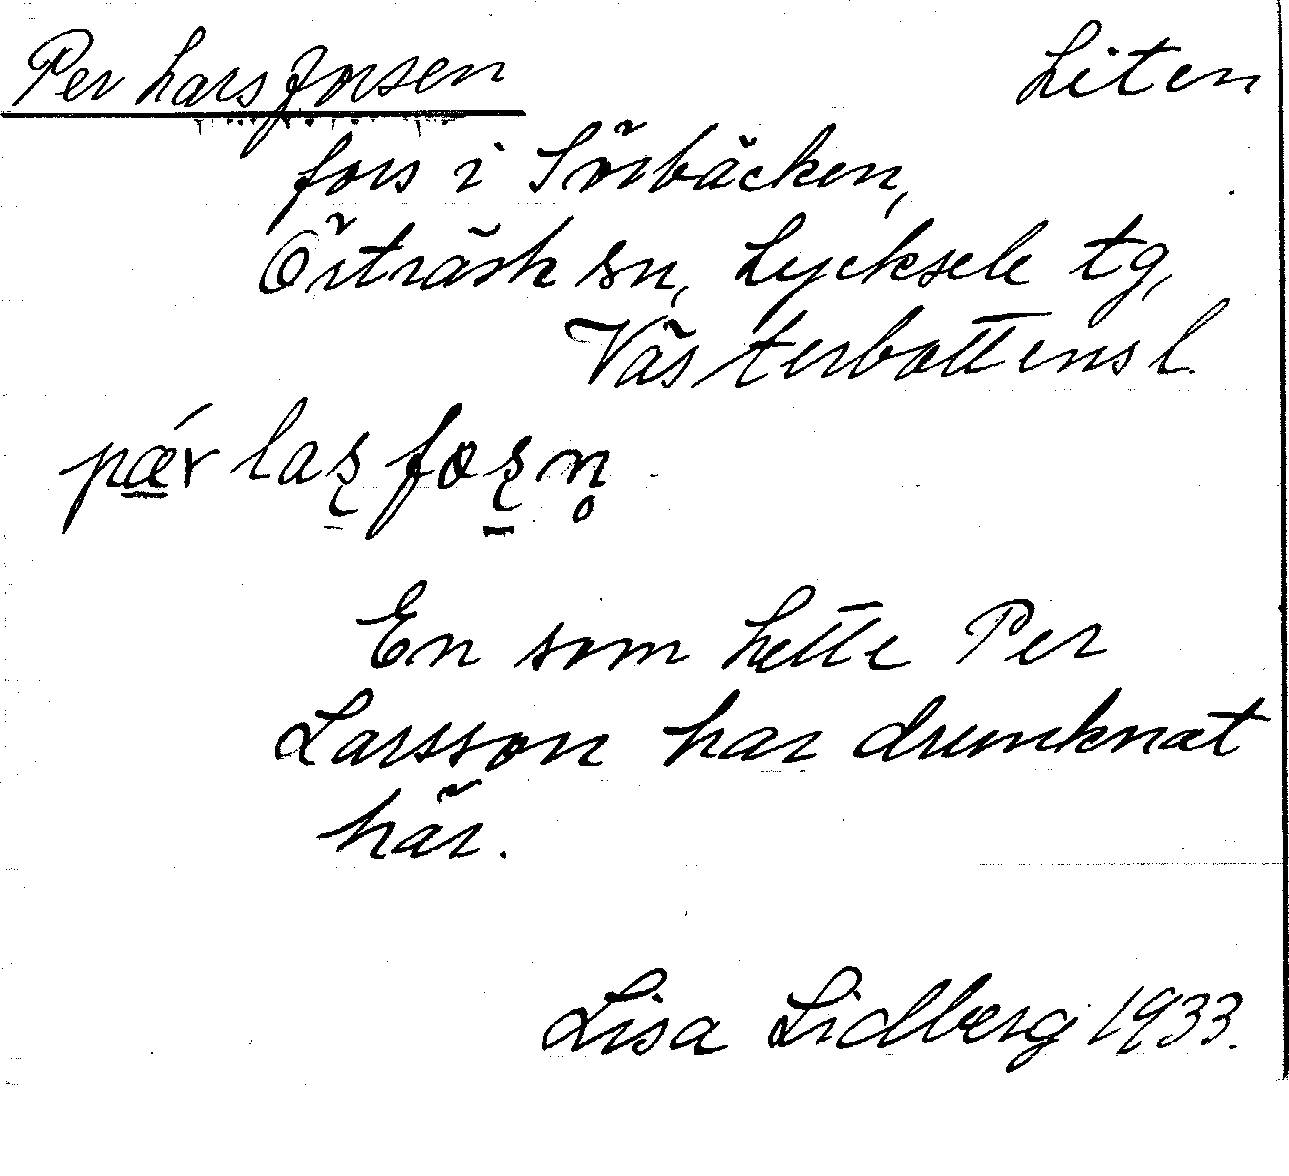 Per Larsforsen Liten
fors i Sörbäcken,
Örträsk sn, Lycksele tg,
Västerbottens l.
pǽr laʂ foʂn̥
En som hette Per
Larsson har drunknat
här.
Lisa Lidberg 1933.